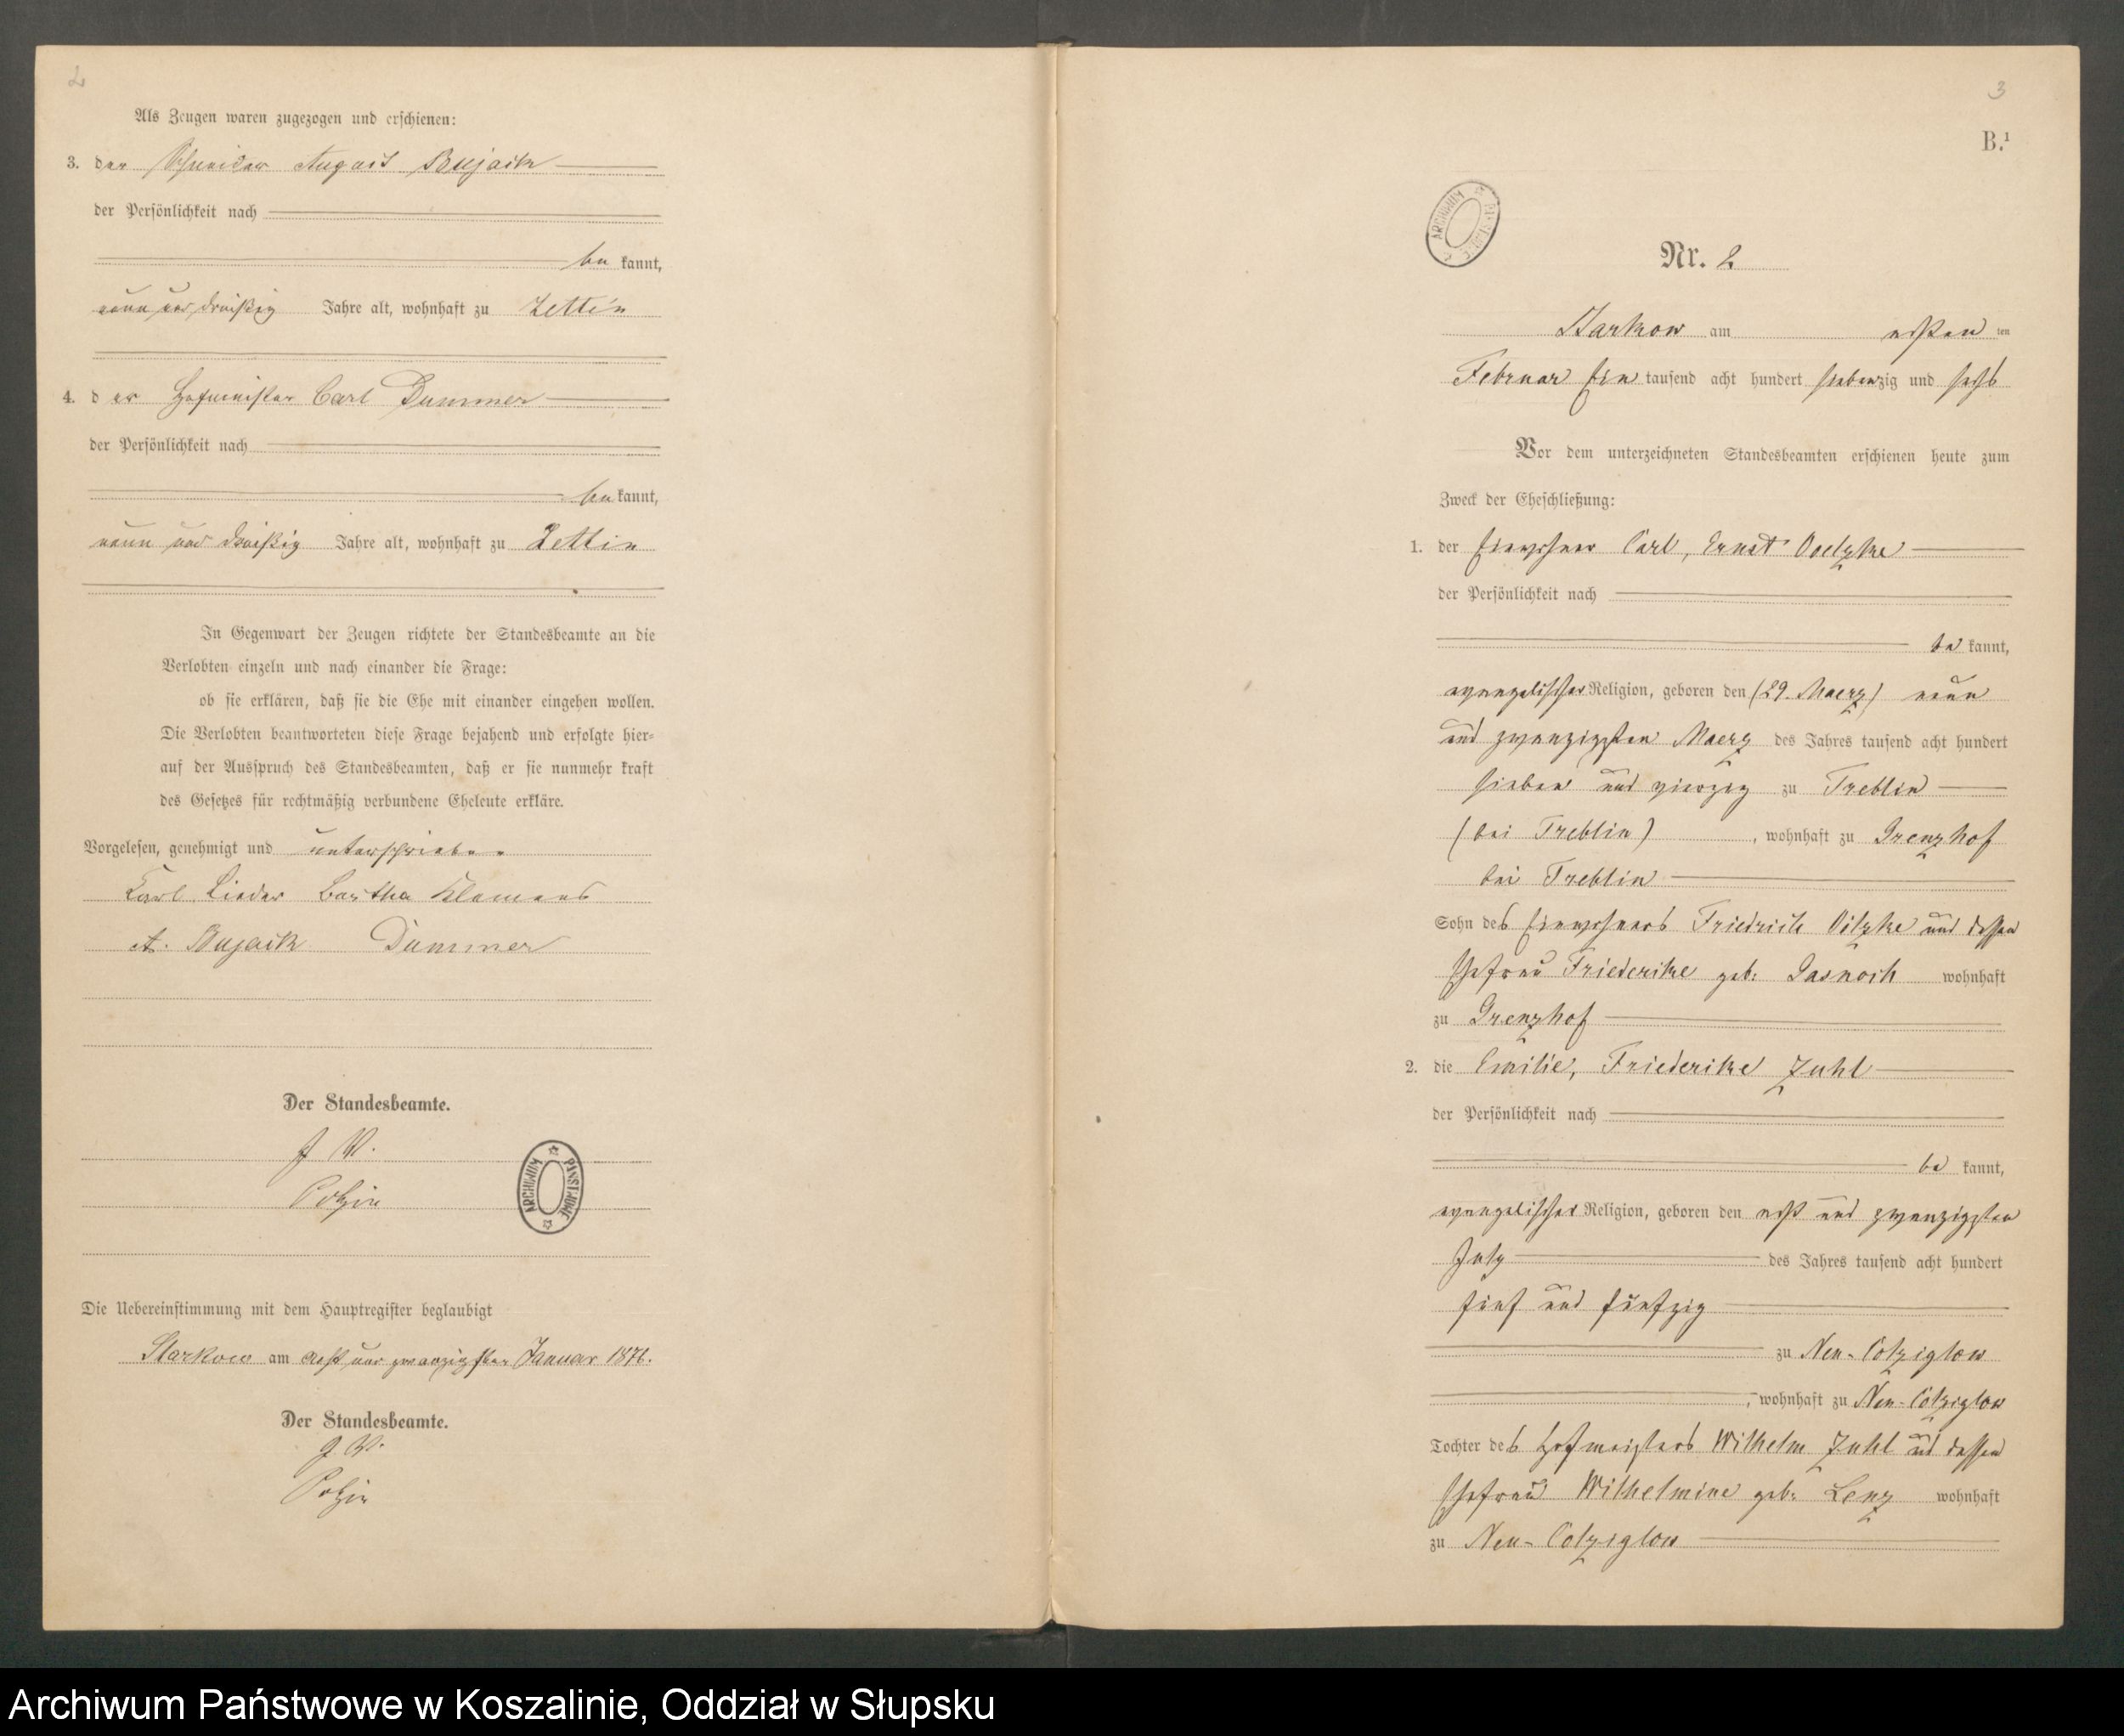 2
Als Zeugen waren zugezogen und erschienen:
3. der Schneider August Bujack
der Persönlichkeit nach
be kannt,
neun und dreißig Jahre alt, wohnhaft zu Zettin
4. d er Hofmeister Carl Dummer
der Persönlichkeit nach
be kannt,
neun und dreißig Jahre alt, wohnhaft zu Zettin
In Gegenwart der Zeugen richtete der Standesbeamte an die
Verlobten einzeln und nach einander die Frage:
ob sie erklären, daß sie die Ehe mit einander eingehen wollen.
Die Verlobten beantworteten diese Frage bejahend und erfolgte hier-
auf der Ausspruch des Standesbeamten, daß er sie nunmehr kraft
des Gesetzes für rechtmäßig verbundene Eheleute erkläre.
Vorgelesen, genehmigt und unterschrieben
Karl Lieder Bertha Klemens
A. Bujack Dummer
Der Standesbeamte.
J V.
Polzin
ARCHIWUM PAŃSTWOWE
Die Uebereinstimmung mit dem Hauptregister beglaubigt
Starkow am acht und zwanzigsten Januar 1876.
Der Standesbeamte.
J V.
Polzin
3
B.¹
ARCHIWUM
Nr. 2
Starkow am ersten ten
Februar Ein tausend acht hundert siebenzig und sechs
Vor dem unterzeichneten Standesbeamten erschienen heute zum
Zweck der Eheschließung:
1. der Einwohner Carl, Ernst Oelzke
der Persönlichkeit nach
be kannt,
evangelischer Religion, geboren den (29. Maerz) neun
und zwanzigsten Maerz des Jahres tausend acht hundert
sieben und vierzig zu Treblin
(bei Treblin), wohnhaft zu Grenzhof
bei Treblin
Sohn des Einwohners Friedrich Oelzke und dessen
Ehefrau Friederike geb: wohnhaft
zu Grenzhof
2. die Emilie, Friederike Zuhl
der Persönlichkeit nach
be kannt,
evangelischer Religion, geboren den erst und zwanzigsten
July des Jahres tausend acht hundert
fünf und fünfzig
zu Neu-Colziglow
, wohnhaft zu Neu-Colziglow
Tochter des Hofmeisters Wilhelm Zuhl und dessen
Ehefrau Wilhelmine geb: Lenz wohnhaft
zu Neu-Colziglow
Archiwum Państwowe w Koszalinie, Oddział w Słupsku